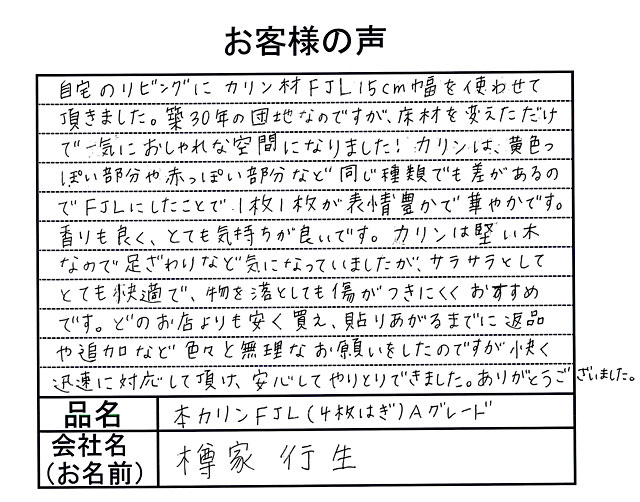 お客様の声
自宅のリビングに カリン材FJL15cm幅を使わせて
頂きました。築30年の団地なのですが、床材を変えただけ
で一気におしゃれな空間になりました! カリンは、黄色っ
ぽい部分や赤っぽい部分など同じ種類でも差があるの
でFJLにしたことで、1枚1枚が表情豊かで華やかです。
香りも良く、とても気持ちが良いです。カリンは堅い木
なので足ざわりなど気になっていましたが、サラサラとして
とても快適で、物を落としても傷がつきにくくおすすめ
です。どのお店よりも安く買え、貼りあがるまでに返品
や追加など色々と無理なお願いをしたのですが快く
迅速に対応して頂け、安心してやりとりできました。ありがとうございました。
品名 本カリンFJL(4枚はぎ)Aグレード
会社名
(お名前) 樽家 行生